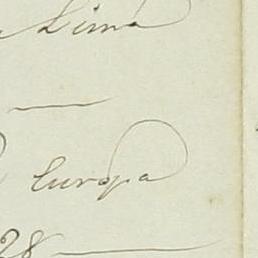 Lima
Europa
28